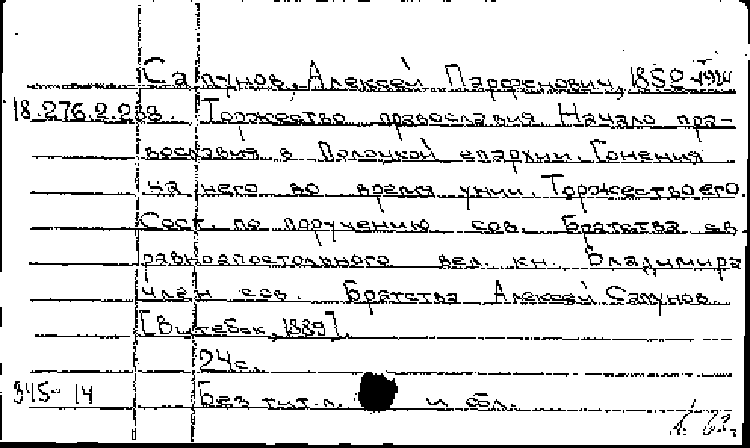 Сапунов, Алексей Парфенович, 1850-1924
18.276.2.268. Торжество православия. Начало пра-
вославия в Полоцкой епархии. Гонения
на него во время унии. Торжество его.
Сост. по поручению сов. Братства св.
равноапостольного вел. кн. Владимира
член сов. Братства Алексей Сапунов.
[Витебск, 1889].
24 с.
345-14 Без тит. л. и обл.